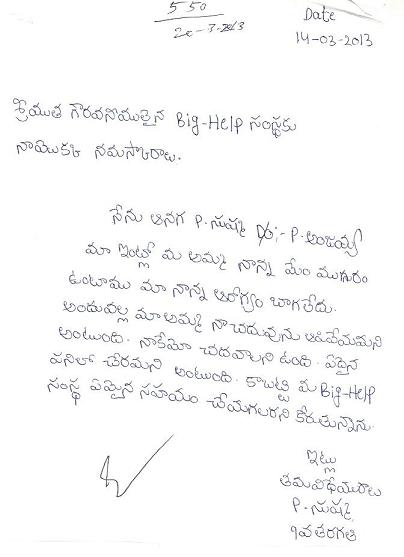 550
20-3-2013
Date
14-03-2013
శ్రీయుత గౌరవనీయులైన Big-Help సంస్థకు
నాయొక్క నమస్కారాలు.
నేను అనగ P.సుష్మ D/o;- P.అంజయ్య
మా ఇంట్లో మ అమ్మ నాన్న మేం ముగురం
ఉంటాము మా నాన్న ఆరోగ్యం బాగలేదు.
అందువల్ల మా అమ్మ నా చదువును ఆపివేయమని
అంటుంది. నాకేమో చదవాలని ఉంది. ఏదైన
పనిలో చేరమని అంటుంది. కాబట్టి మ Big-Help
సంస్థ ఏమైన సహయం చేయగలరని కోరుతున్నాను.
ఇట్లు
తమవిధేయురాలు
P.సుష్మ
9వతరగతి